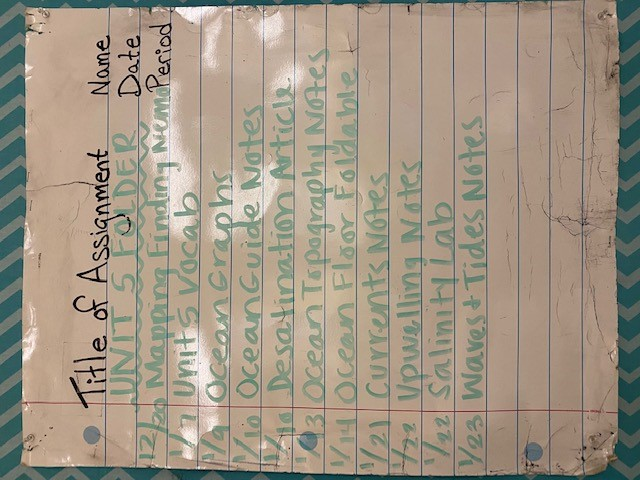 Name
Date
Title of Assignment Period
UNIT 5 FOLDER
12/20 Mapping Finding Nemo
1/7 Unit 5 Vocab
1/9 Ocean Graphs
1/10 Ocean Guide Notes
Desalination Article
Ocean Topography Notes
1/14 Ocean Floor Foldable
1/21 Currents Notes
1/22 Upwelling Notes
1/22 Salinity Lab
1/23 Waves + Tides Notes